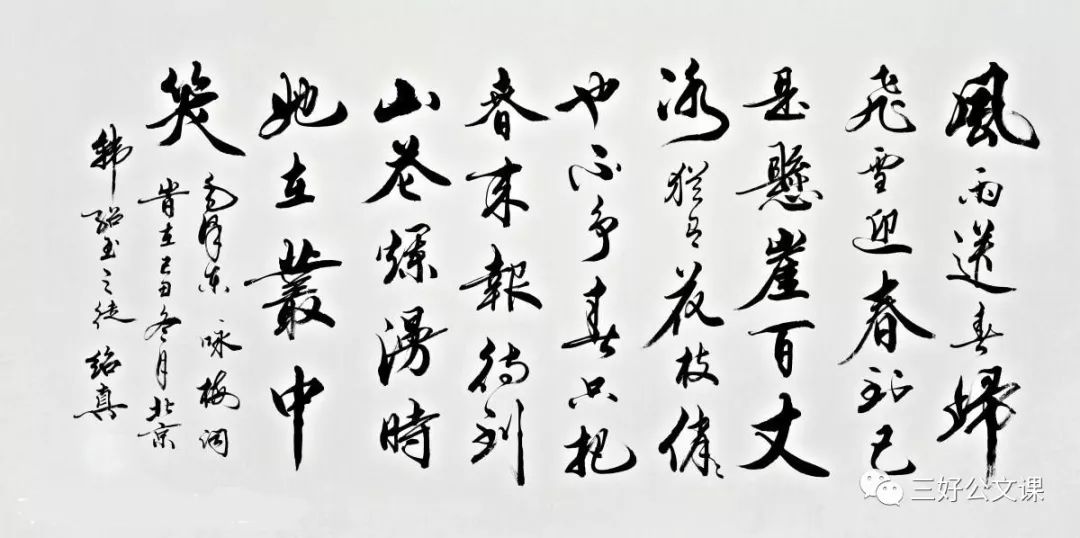 風雨送春歸
飛雪迎春到已
是懸崖百丈
冰猶有花枝俏
也不争春只把
春来報待到
山花爛漫時
她在叢中
笑
毛泽东 咏梅词
岁在己丑冬月北京
韩绍玉之徒 绍真
三好公文课